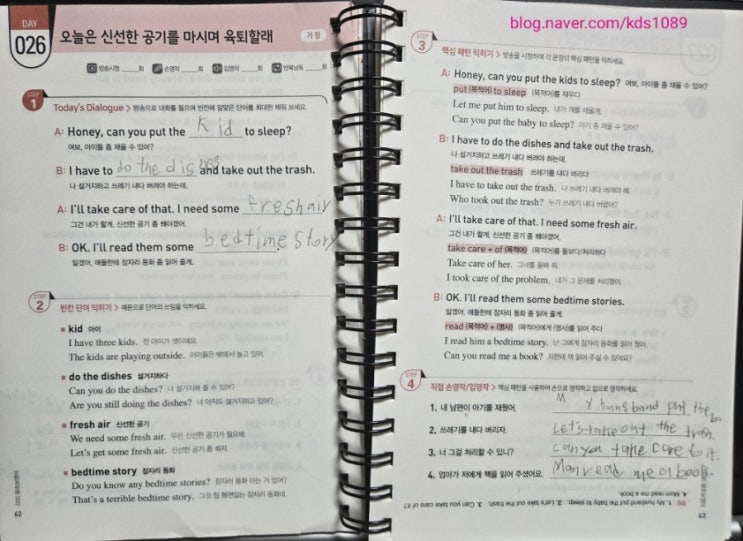 blog.naver.com/kds1089
DAY
026
오늘은 신선한 공기를 마시며 육퇴할래
가정
방송시청 회 손영작 회 입영작 회 반복낭독 회
STEP 1
Today's Dialogue > 방송으로 대화를 들으며 빈칸에 알맞은 단어를 최대한 채워 보세요.
A: Honey, can you put the kid to sleep?
여보, 아이들 좀 재울 수 있어?
B: I have to do the dishes and take out the trash.
나 설거지하고 쓰레기 내다 버려야 하는데.
A: I'll take care of that. I need some fresh air
그건 내가 할게. 신선한 공기 좀 쐐야겠어.
B: OK. I'll read them some bedtime story
알겠어. 애들한테 잠자리 동화 좀 읽어 줄게.
STEP 2
빈칸 단어 익히기 > 예문으로 단어의 쓰임을 익히세요.
kid 아이
I have three kids. 전 아이가 셋이에요.
The kids are playing outside. 아이들은 밖에서 놀고 있어.
do the dishes 설거지하다
Can you do the dishes? 너 설거지해 줄 수 있어?
Are you still doing the dishes? 너 아직도 설거지하고 있어?
fresh air 신선한 공기
We need some fresh air. 우린 신선한 공기가 필요해.
Let's get some fresh air. 신선한 공기 좀 쐬자.
bedtime story 잠자리 동화
Do you know any bedtime stories? 잠자리 동화 아는 거 있어?
That's a terrible bedtime story. 그것 참 형편없는 잠자리 동화네.
62
STEP 3
핵심 패턴 익히기 > 방송을 시청하며 각 문장의 핵심 패턴을 익히세요.
A: Honey, can you put the kids to sleep? 여보, 아이들 좀 재울 수 있어?
put (목적어) to sleep (목적어)를 재우다
Let me put him to sleep. 내가 걔를 재울게.
Can you put the baby to sleep? 아기 좀 재울 수 있어?
B: I have to do the dishes and take out the trash.
나 설거지하고 쓰레기 내다 버려야 하는데.
take out the trash 쓰레기를 내다 버리다
I have to take out the trash. 나 쓰레기 내다 버려야 해.
Who took out the trash? 누가 쓰레기 내다 버렸어?
A: I'll take care of that. I need some fresh air.
그건 내가 할게. 신선한 공기 좀 쐐야겠어.
take care + of (목적어) (목적어)를 돌보다/처리하다
Take care of her. 그녀를 돌봐 줘.
I took care of the problem. 내가 그 문제를 처리했어.
B: OK. I'll read them some bedtime stories.
알겠어. 애들한테 잠자리 동화 좀 읽어 줄게.
read (목적어) + (명사) (목적어)에게 (명사)를 읽어 주다
I read him a bedtime story. 난 그에게 잠자리 동화를 읽어 줬어.
Can you read me a book? 저한테 책 읽어 주실 수 있어요?
STEP 4
직접 손영작/입영작 > 핵심 패턴을 사용하여 손으로 영작하고 입으로 영작하세요.
1. 내 남편이 아기를 재웠어. My hunsband put the
2. 쓰레기를 내다 버리자. Let's take out the trash.
3. 너 그걸 처리할 수 있니? can you take care to it.
4. 엄마가 저에게 책을 읽어 주셨어요. Mom read me a book.
1. My husband put the baby to sleep. 2. Let's take out the trash. 3. Can you take care of it?
4. Mom read me a book.
63